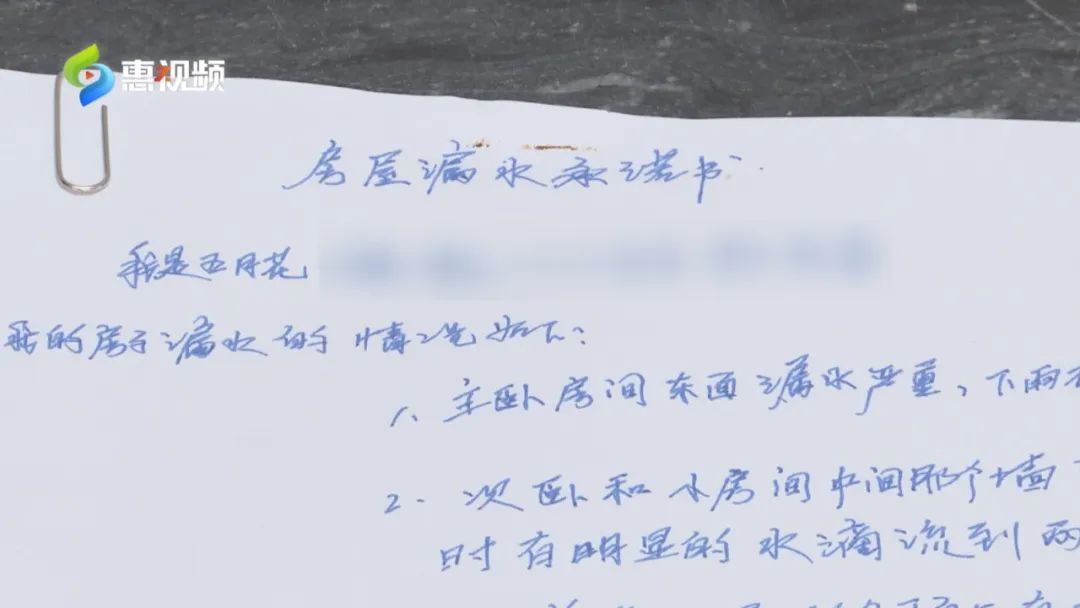 惠视频
房屋漏水承诺书
我是五月花
我的房子漏水的情况如下:
1、主卧房间东面漏水严重,下雨
2. 次卧和小房间中间那个墙
时有明显的水滴流到两